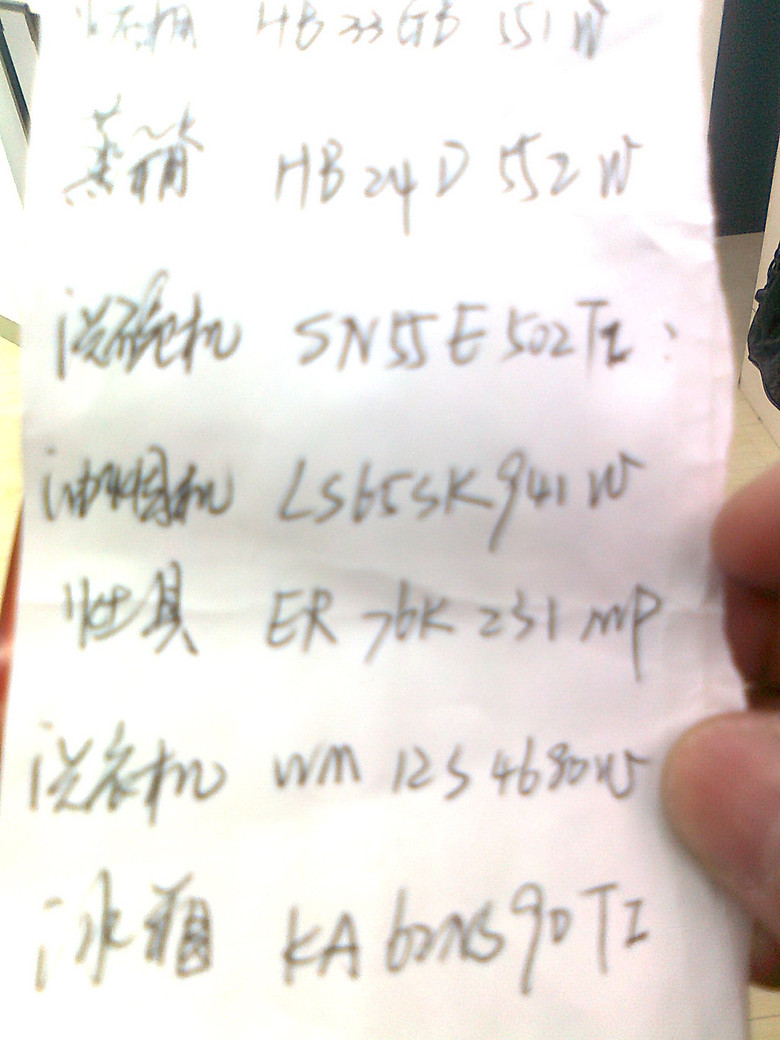 烤箱 HB33GB551W
蒸箱 HB24D552W
洗碗机 SN55E502TI
油烟机 LS65SK941W
灶具 ER76K231MP
洗衣机 WM12S4680W
冰箱 KA62NS90TI